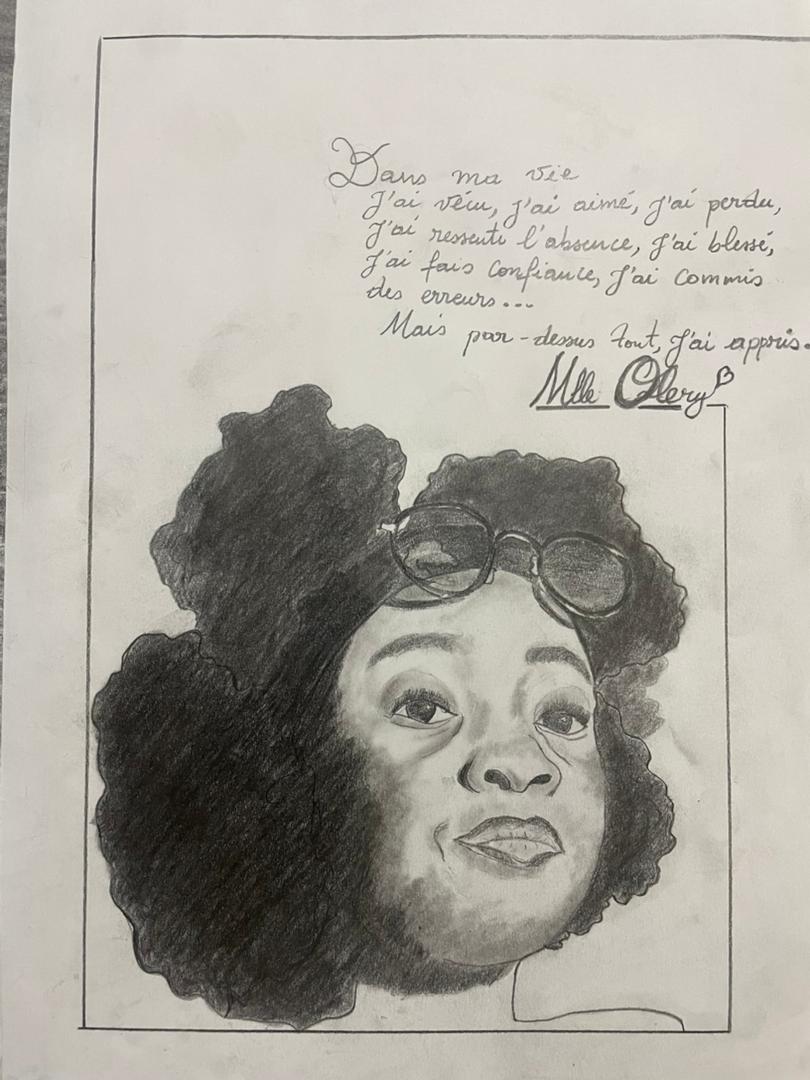 Dans ma vie
J'ai vécu, j'ai aimé, j'ai perdu,
J'ai ressenti l'absence, j'ai blessé,
J'ai fais confiance, j'ai commis
des erreurs...
Mais par-dessus tout, j'ai appris.
Mlle Olery